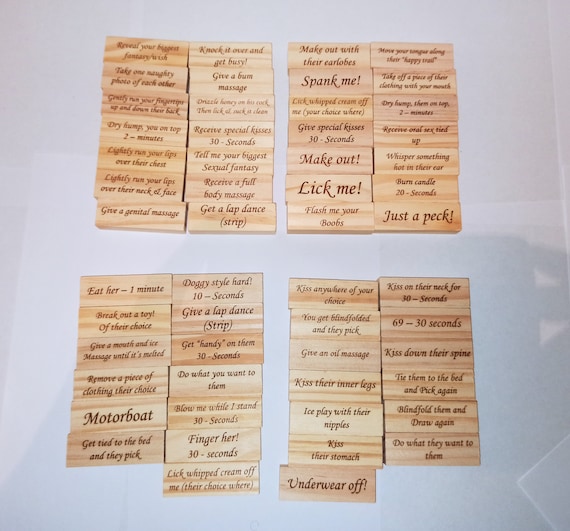 Reveal your biggest
fantasy/wish
Take one naughty
photo of each other
Gently run your fingertips
up and down their back
Dry hump, you on top
2 – minutes
Lightly run your lips
over their chest
Lightly run your lips
over their neck & face
Give a genital massage
Knock it over and
get busy!
Give a bum
massage
Drizzle honey on his cock.
Then lick &, suck it clean
Receive special kisses
30 - Seconds
Tell me your biggest
Sexual fantasy
Receive a full
body massage
Get a lap dance
(strip)
Make out with
their earlobes
Spank me!
Lick whipped cream off
me (your choice where)
Give special kisses
30 - Seconds
Make out!
Lick me!
Flash me your
Boobs
Move your tongue along
their "happy trail"
Take off a piece of their
clothing with your mouth
Dry hump, them on top,
2 – minutes
Receive oral sex tied
up
Whisper something
hot in their ear
Burn candle
20 - Seconds
Just a peck!
Eat her – 1 minute
Break out a toy!
Of their choice
Give a mouth and ice
Massage until it's melted
Remove a piece of
clothing their choice
Motorboat
Get tied to the bed
and they pick
Doggy style hard!
10 – Seconds
Give a lap dance
(Strip)
Get "handy" on them
30 - Seconds
Do what you want to
them
Blow me while I stand
30 - Seconds
Finger her!
30 - seconds
Lick whipped cream off
me (their choice where)
Kiss anywhere of your
choice
You get blindfolded
and they pick
Give an oil massage
Kiss their inner legs
Ice play with their
nipples
Kiss
their stomach
Underwear off!
Kiss on their neck for
30 – Seconds
69 – 30 seconds
Kiss down their spine
Tie them to the bed
and Pick again
Blindfold them and
Draw again
Do what they want to
them